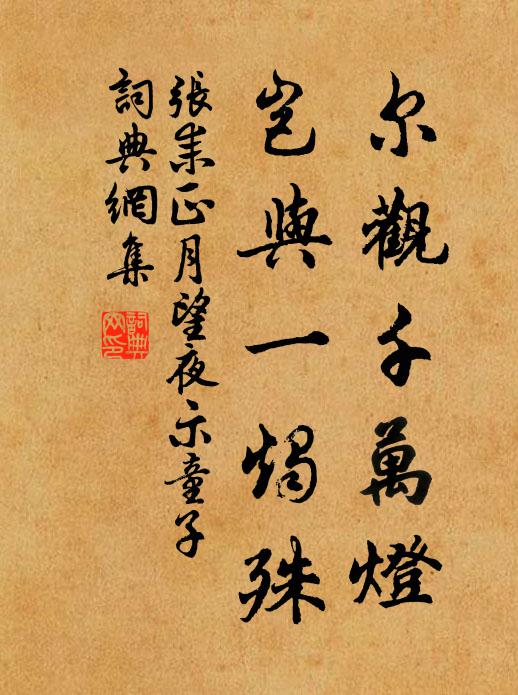 尔觀千萬燈
豈與一燭殊
張耒正月望夜示童子
詞典網集
詞典網印